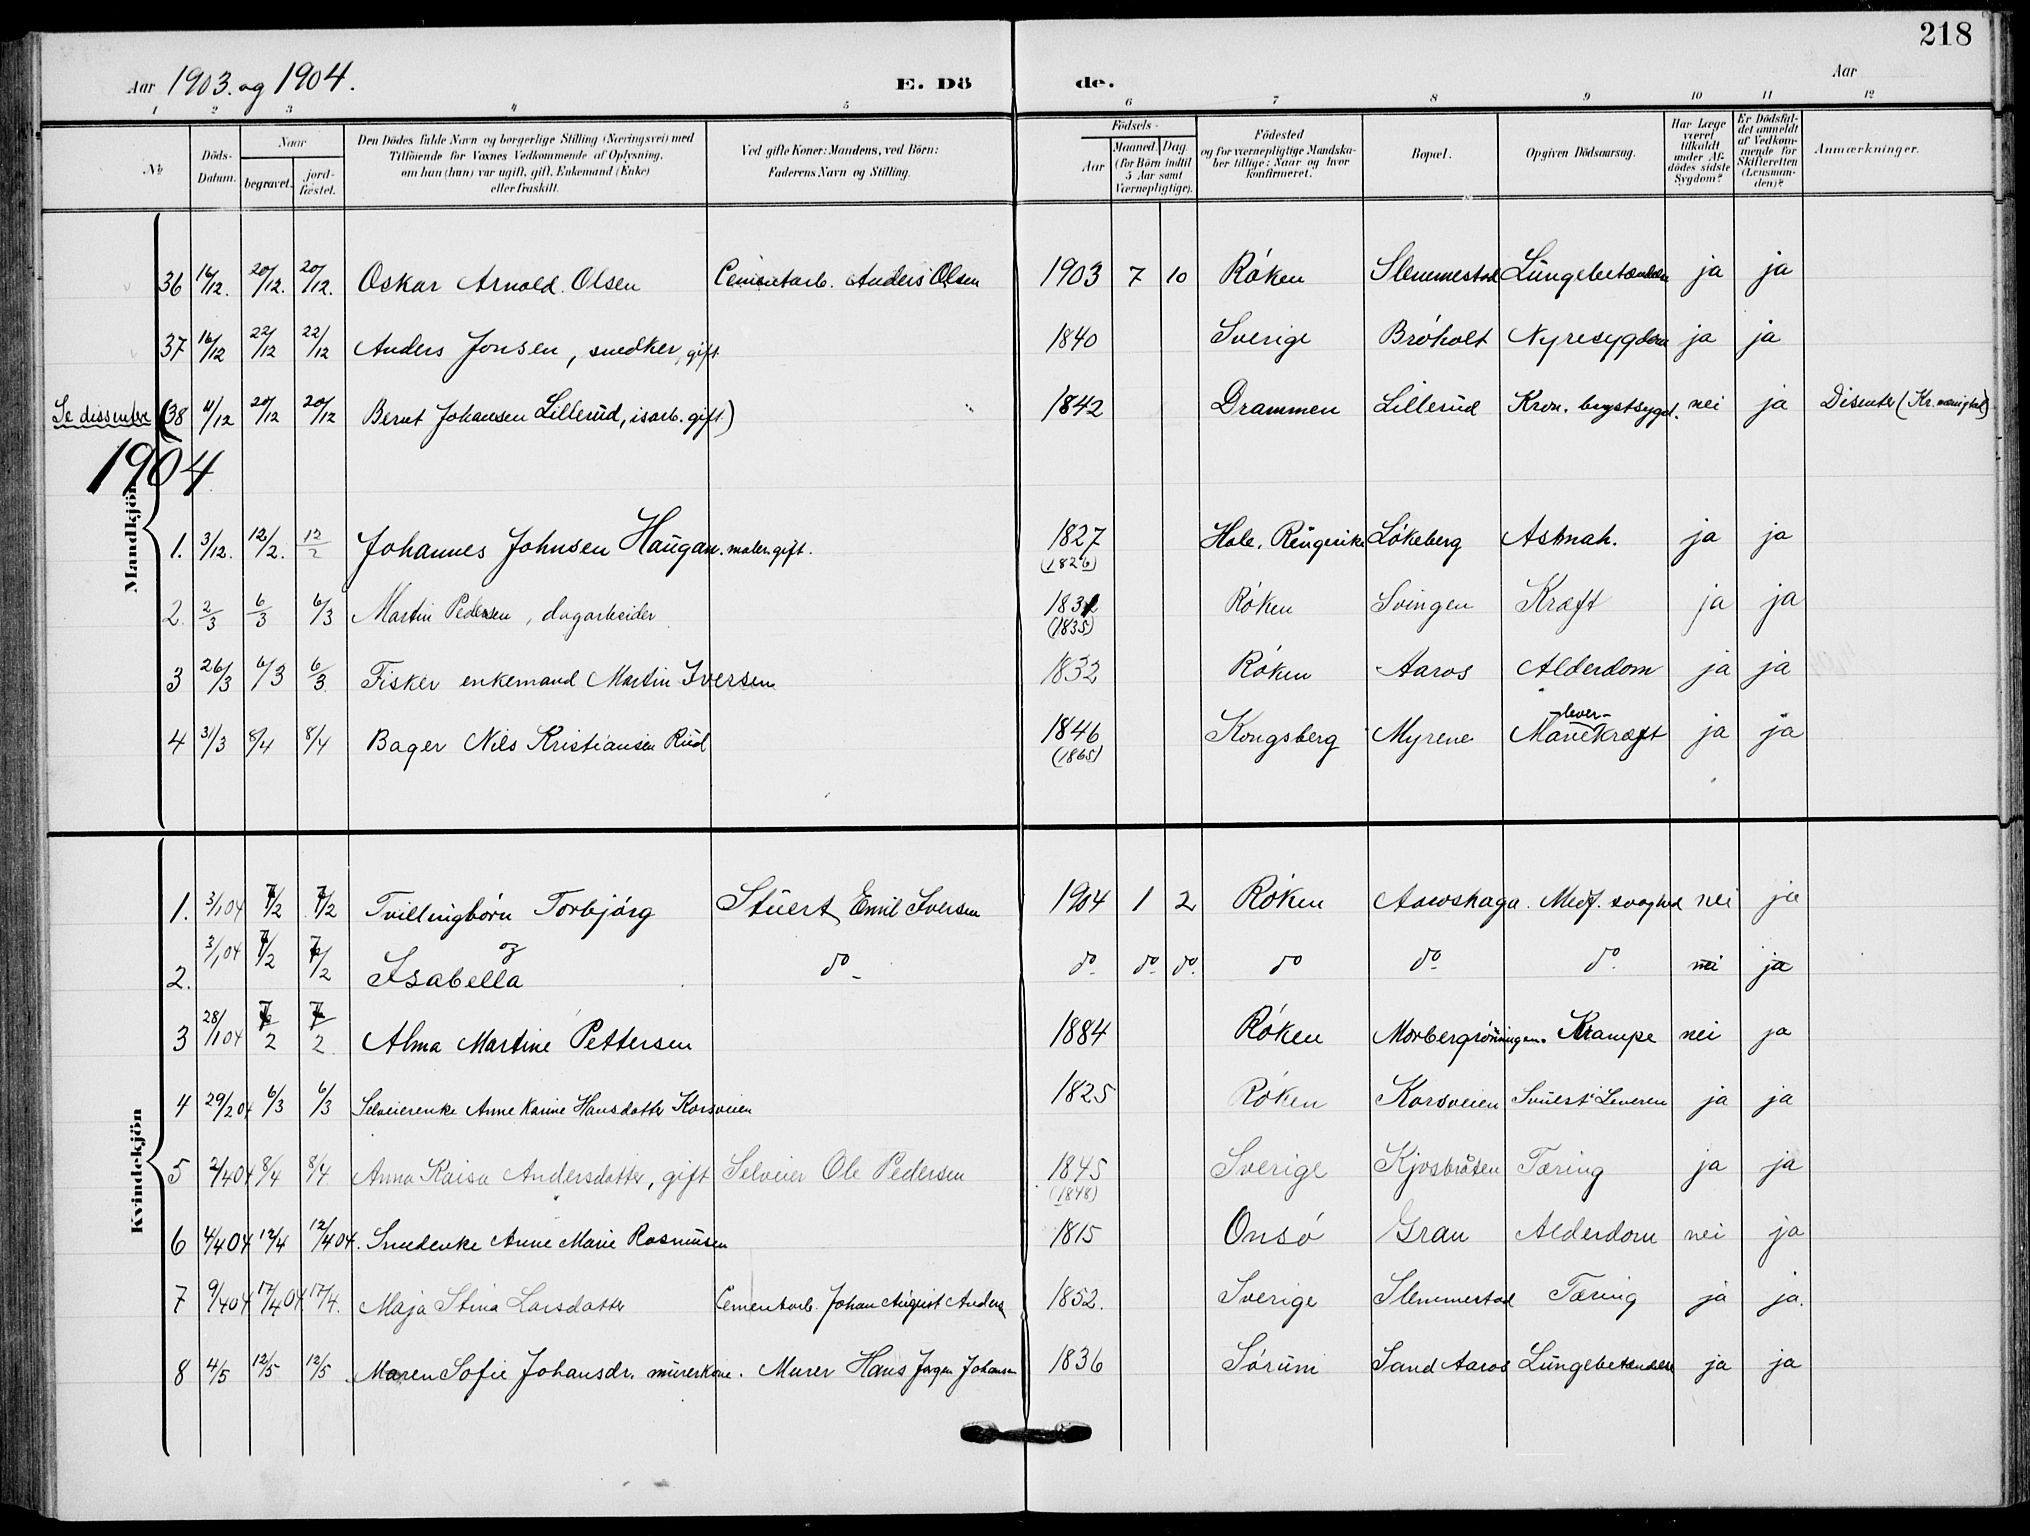 218
Aar 1903. og 1904.
E. Dö de.
Aar
1 2 3 4 5 6 7 8 9 10 11 12
No
Döds-Datum.
Naar
begravet.
jord-fæstet.
Den Dödes fulde Navn og borgerlige Stilling (Næringsvei) med
Tilföiende for Voxnes Vedkommende af Oplysning,
om han (hun) var ugift, gift, Enkemand (Enke)
eller fraskilt.
Ved gifte Koner: Mandens, ved Börn:
Faderens Navn og Stilling.
Födsels-
Aar
Maaned. Dag.
(for Börn indtil
5 Aar samt
Værnepligtige).
Födested
og for værnepligtige Mandska-
ber tillige: Naar og hvor
konfirmeret.
Bopæl.
Opgiven Dödsaarsag.
Har Læge
været
tilkaldt
under Af-
dödes sidste
Sygdom?
Er Dödsfal-
det anmeldt
af Vedkom-
mende for
Skifteretten
(Lensman-
den)?
Anmærkninger.
Mandkjön
36 16/12. 20/12. 20/12. Oskar Arnold Olsen Cementarb. Anders Olsen 1903 7 10 Röken Slemmestad Lungebetændelse ja ja
37 16/12 22/12 22/12 Anders Jonsen, snedker, gift 1840 Sverige Bröholt Nyresygdom ja ja
Se dissentere (38 11/12 20/12 20/12 Bernt Johansen Lillerud, isarb. gift) 1842 Drammen Lillerud Kron. brystsygd. nei ja Disenter (Kr. menighed)
1904
1. 3/12. 12/2. 12/2 Johannes Johnsen Haugan. maler. gift. 1827 Hole, Ringerike Lökeberg Astmah. ja ja
(1826)
2. 2/3 6/3 6/3 Martin Pedersen, dagarbeider Röken Svingen Kræft ja ja
(1835)
3 26/3 6/3 6/3 Fisker enkemand Martin Iversen 1832 Röken Aaros Alderdom ja ja
lever-
4 31/3 8/4 8/4 Bager Nils Kristiansen Rud 1846 Kongsberg Myrene Mavekræft ja ja
(1865)
Kvindekjön
1. 3/1 04 7/2 7/2 Tvillingbörn Torbjörg Stuert Emil Iversen 1904 1 2 Röken Aaroshaga. Medf. svaghed nei ja
og
2. 3/1 04 7/2 7/2 Isabella do do do do do do do nei ja
3 28/1 04 7/2 7/2 Alma Martine Pettersen 1884 Röken Morbergröningen. Krampe nei ja
4 29/2 04 6/3 6/3 Selveierenke Anne Karine Hansdatter Korsveien 1825 Röken Korsveien Svulst i Leveren ja ja
5 2/4 04 8/4 8/4 Anna Kaisa Andersdatter, gift Selveier Ole Pedersen 1845 Sverige Kjosbråten Tæring ja ja
(1848)
6 4/4 04 12/4 12/4 04. Smedenke Anne Marie Rasmusen 1815 Onsö Gran Alderdom nei ja
7 9/4 04 17/4 04 17/4. Maja Stina Larsdatter Cementarb. Johan August Anders 1852. Sverige Slemmestad Tæring ja ja.
8 4/5 12/5 12/5 Maren Sofie Johansdr. murerkone. Murer Hans Jörgen Johansen 1836 Sörum Sand Aaros Lungebetændelse ja ja